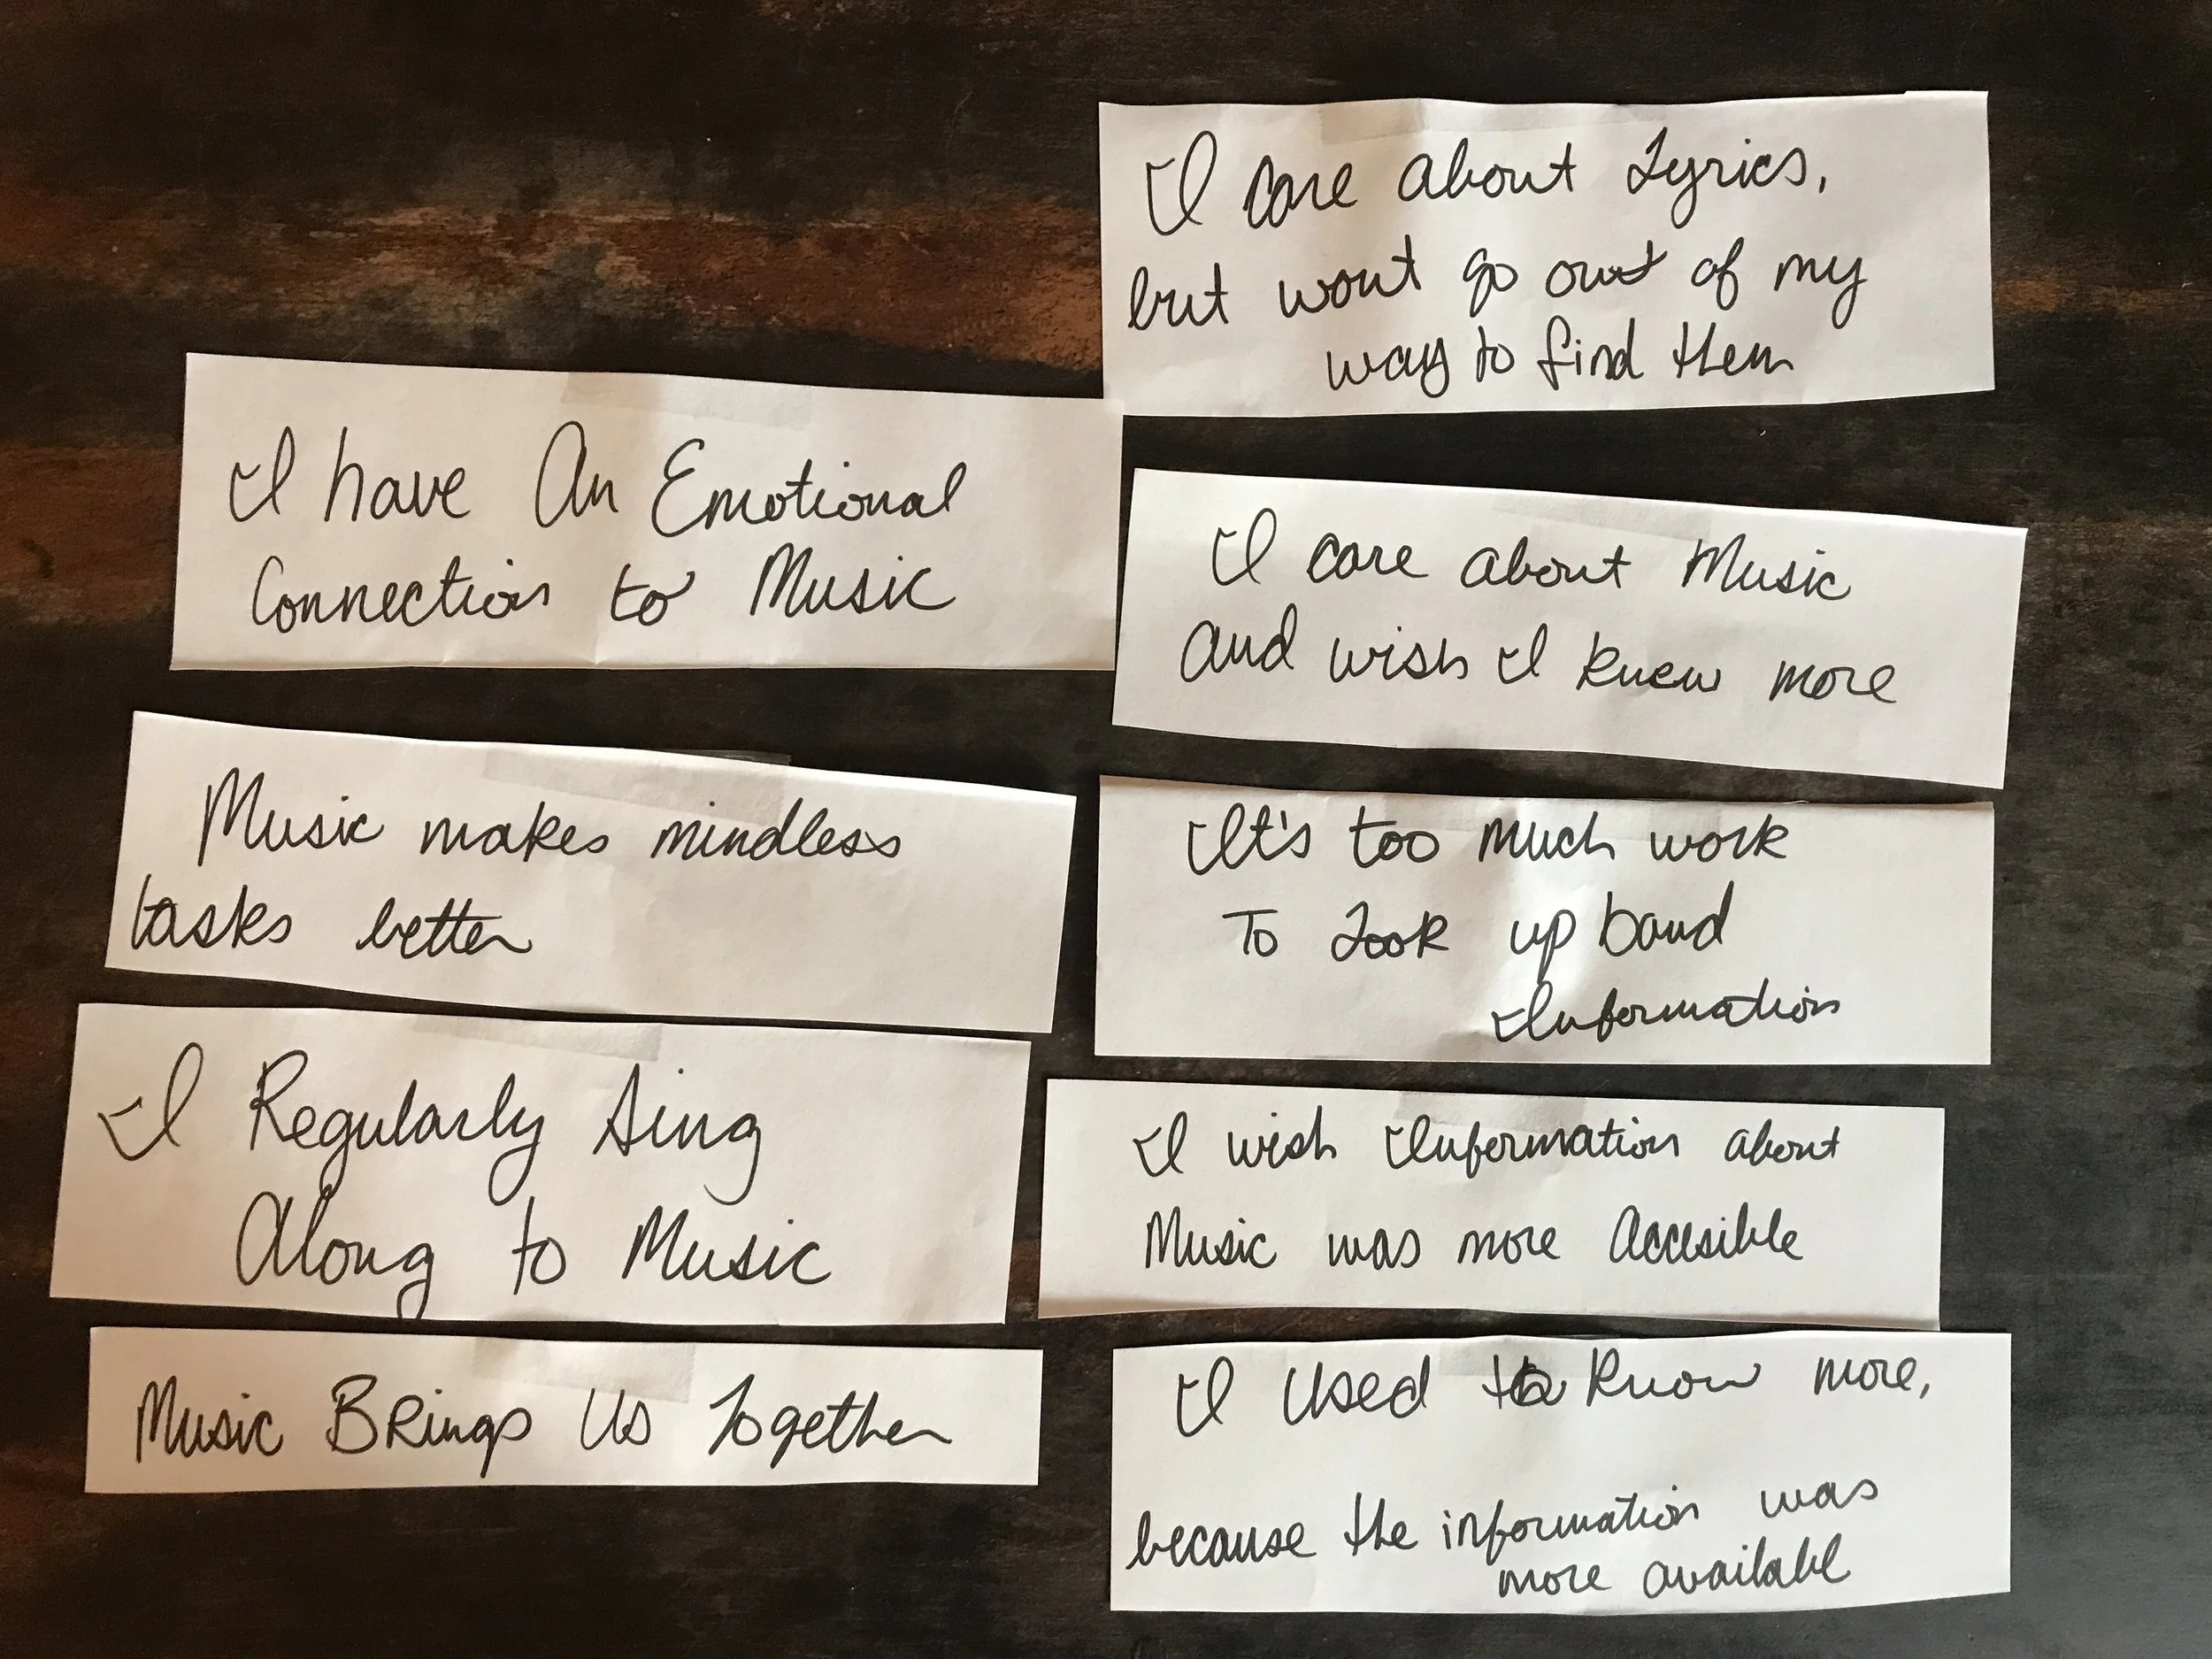 I have An Emotional
Connection to Music
Music makes mindless
tasks better
I Regularly Sing
Along to Music
Music Brings Us Together
I care about Lyrics,
but wont go out of my
way to find them
I care about Music
and wish I knew more
It's too much work
To Look up band
Information
I wish Information about
Music was more Accesible
I Used to know more,
because the information was
more available